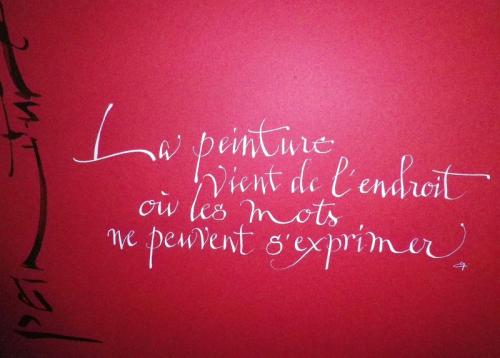 La peinture
vient de l'endroit
où les mots
ne peuvent s'exprimer
peinture